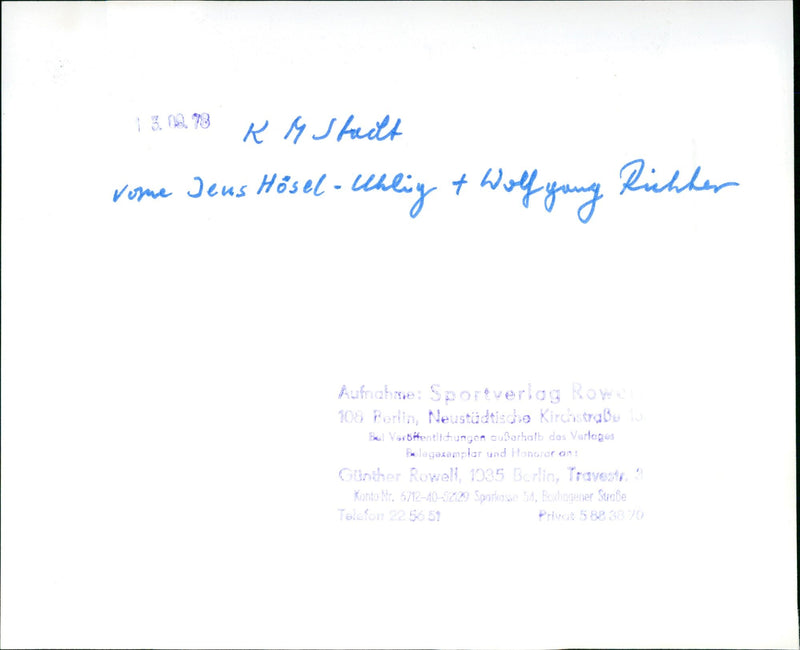 13.08.78
K M Stadt
vorne Jens Hösel-Uhlig + Wolfgang Richter
Aufnahme: Sportverlag Rowell
108 Berlin, Neustädtische Kirchstraße
Bei Veröffentlichungen außerhalb des Verlages
Belegexemplar und Honorar an:
Günther Rowell, 1035 Berlin, Travestr. 3
Konto Nr. 6712-40-52129 Sparkasse 54, Boxhagener Straße
Telefon 22 56 51 Privat 5 88 38 70